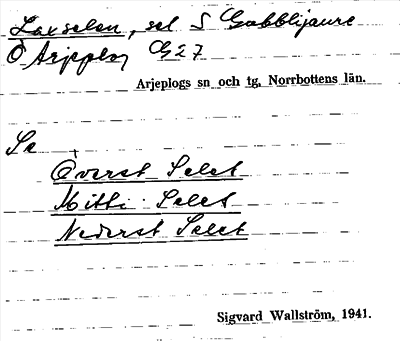 Laxselen, sel S Gabblijaure
Ö Arjeplog G27
Arjeplogs sn och tg, Norrbottens län.
Se
Överst Selet
Mitti Selet
Nederst Selet
Sigvard Wallström, 1941.